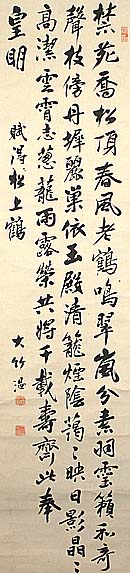 禁苑喬松頂春風老鶴鳴翠嵐分素羽靈籟和奇
聲枝傍丹墀麗巢依玉殿清籠煙陰藹〻映日影晶〻
高潔雲霄志葱蘢雨露榮共將千載壽齊此奉
皇明
賦得松上鶴
大竹温